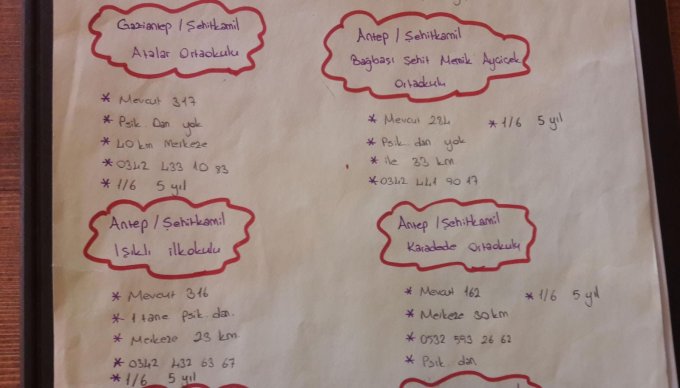 Gaziantep / Şehitkamil
Atalar Ortaokulu
* Mevcut 317
* Psik. Dan yok
* 40 km Merkeze
* 0342 433 10 83
* 1/6 5 yıl
Antep / Şehitkamil
Bağbaşı Şehit Memik Ayçiçek
Ortaokulu
* Mevcut 284 * 1/6 5 yıl
* Psik. dan yok
* ile 33 km
* 0342 441 90 17
Antep / Şehitkamil
Işıklı ilkokulu
* Mevcut 316
* 1 tane Psik. dan.
* Merkeze 23 km.
* 0342 432 63 67
* 1/6 5 yıl
Antep / Şehitkamil
Karadede Ortaokulu
* Mevcut 162 * 1/6 5 yıl
* Merkeze 30 km
* 0532 593 26 62
* Psik. dan